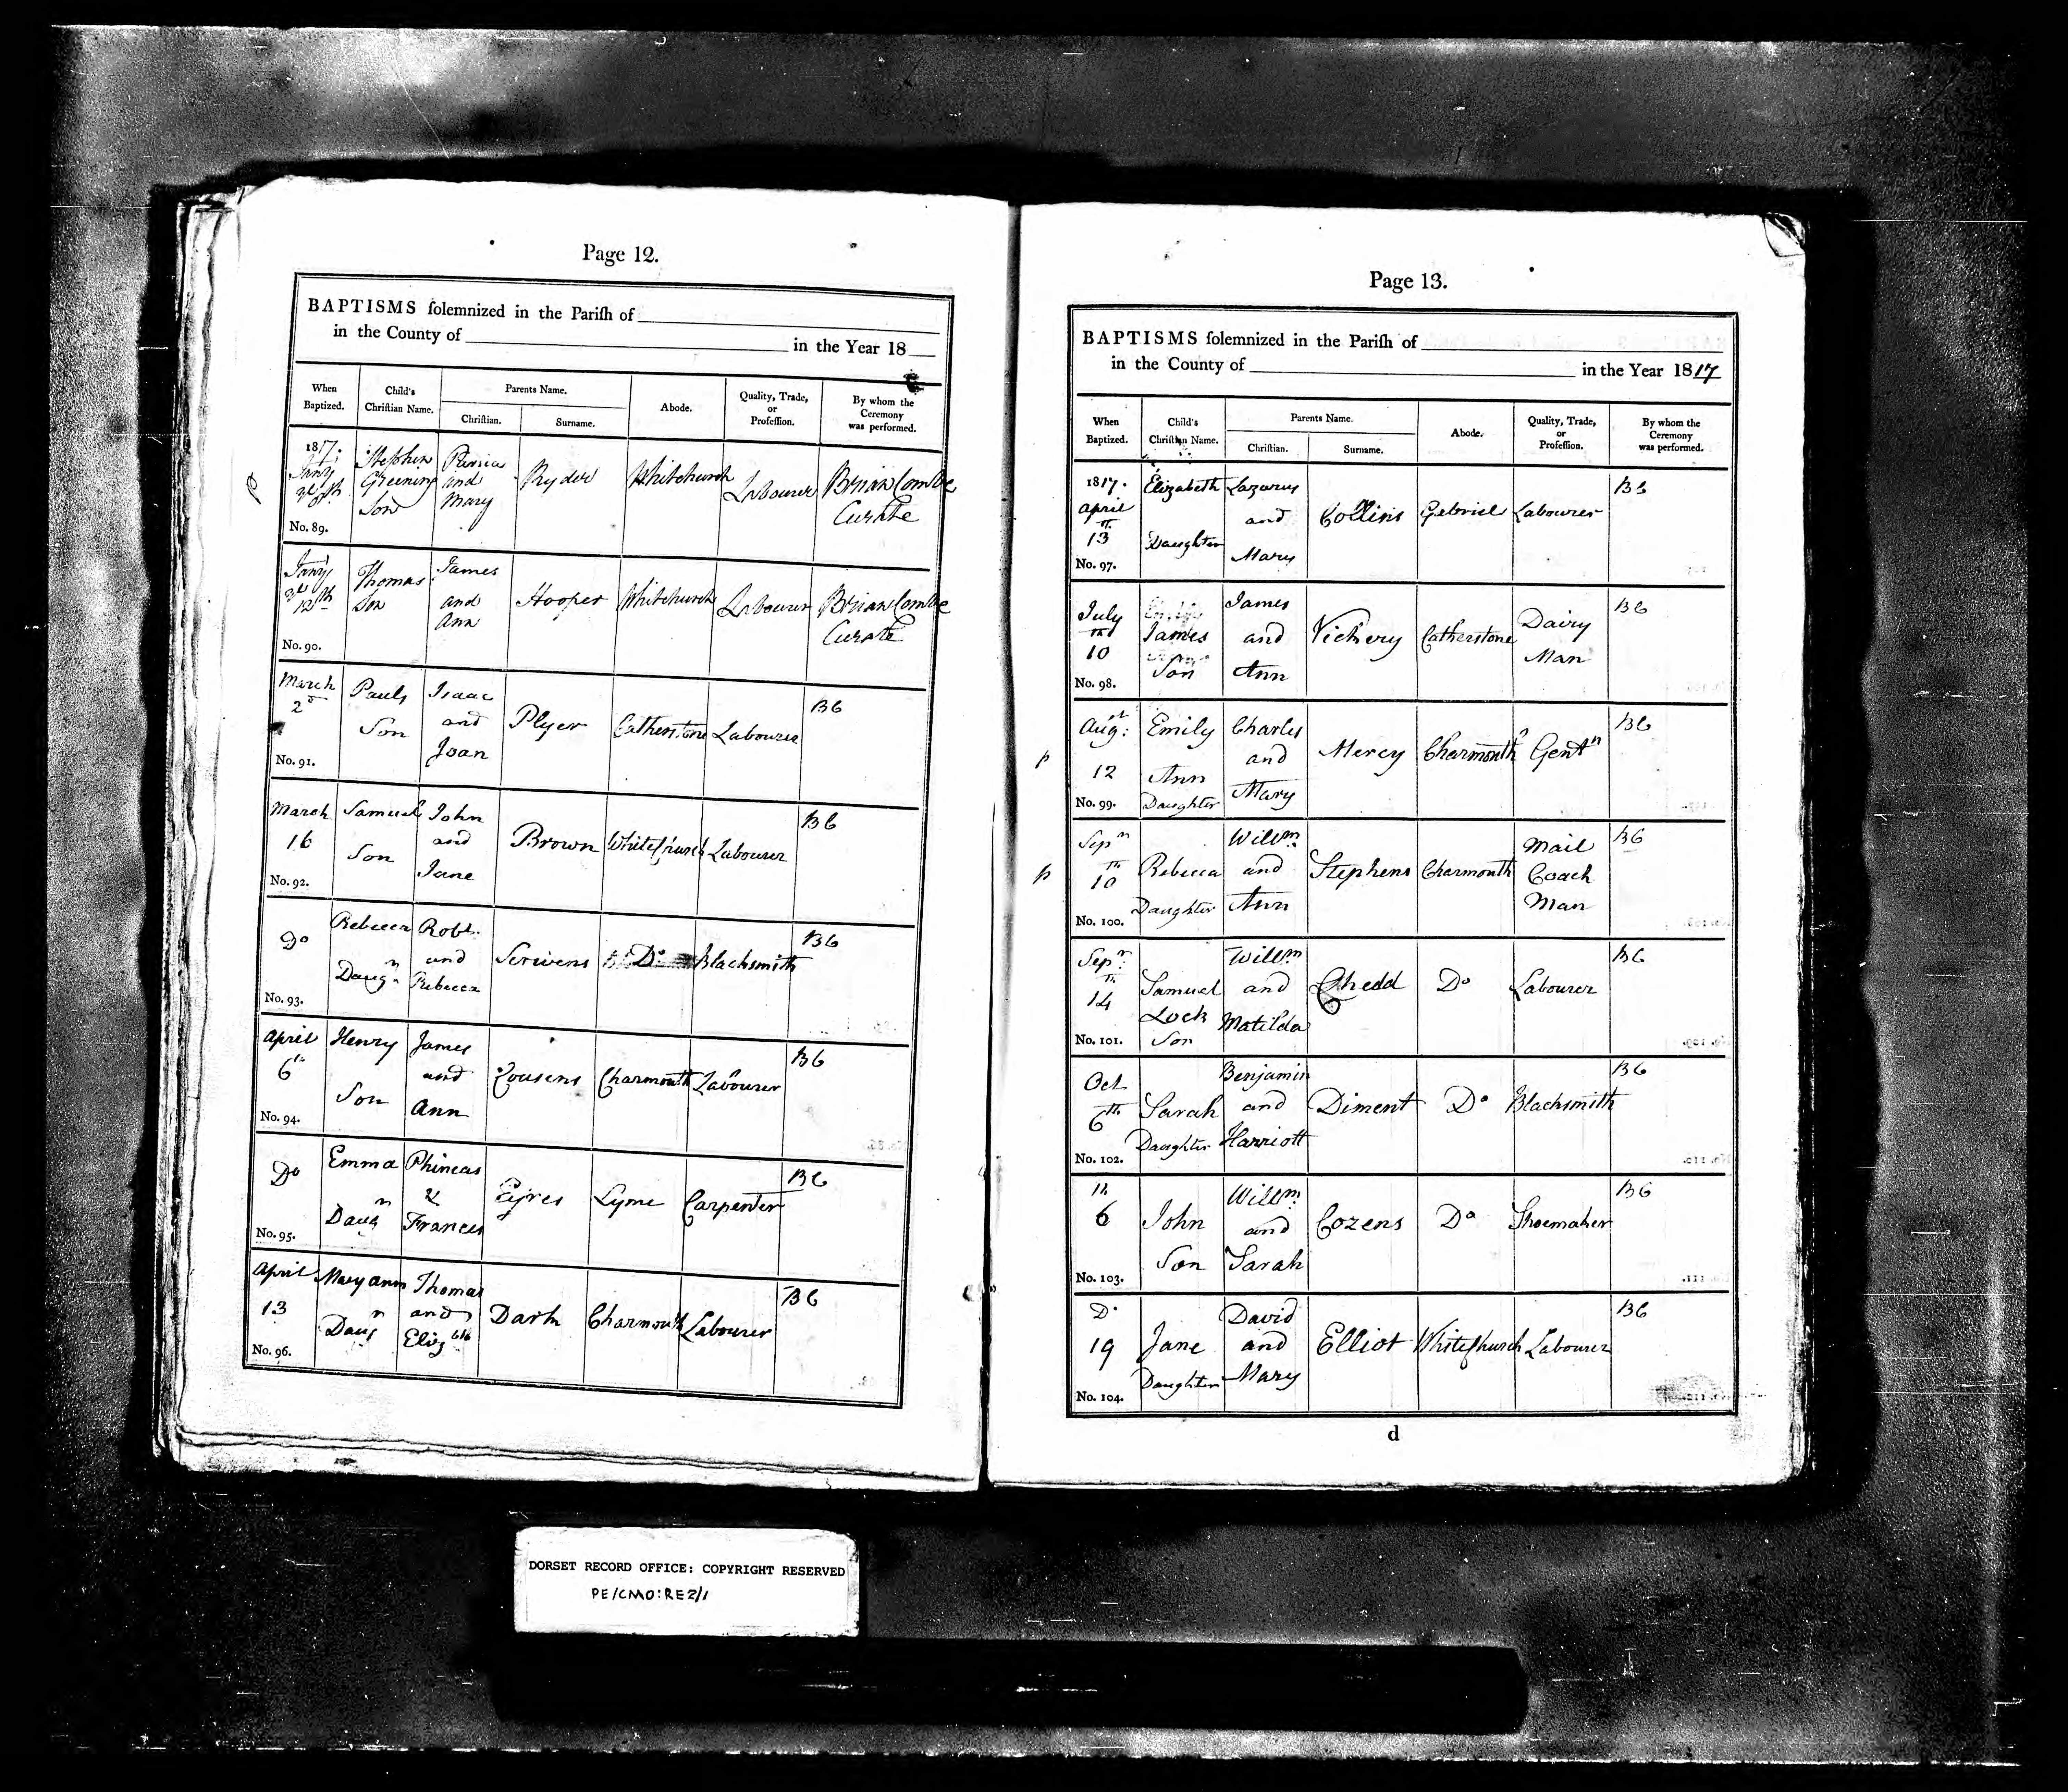 Page 12.
BAPTISMS solemnized in the Parish of
in the County of in the Year 18
When Baptized.
Child's Christian Name.
Parents Name.
Christian.
Surname.
Abode.
Quality, Trade, or Profession.
By whom the Ceremony was performed.
1817.
Stephen Greening Son
and Mary
Ryder
Whitchurch
Labourer
Brian Combe Curate
No. 89.
12th
Thomas Son
James and Ann
Hooper
Whitchurch
Labourer
Brian Combe Curate
No. 90.
March 2
Pauls Son
Isaac and Joan
Plyer
Catherstone
Labourer
BC
No. 91.
March 16
Samuel Son
John and Jane
Brown
Whitchurch
Labourer
BC
No. 92.
Do
Rebecca Daugn
Robt. and Rebecca
Scrivens
Do
Blacksmith
BC
No. 93.
April 6th
Henry Son
James and Ann
Cousens
Charmouth
Labourer
BC
No. 94.
Do
Emma Daugn
Phineas & Frances
Eyres
Lyme
Carpenter
BC
No. 95.
April 13
Mary ann Daugn
Thomas and Elizbth
Dark
Charmouth
Labourer
BC
No. 96.
Page 13.
BAPTISMS solemnized in the Parish of
in the County of in the Year 1817
When Baptized.
Child's Christian Name.
Parents Name.
Christian.
Surname.
Abode.
Quality, Trade, or Profession.
By whom the Ceremony was performed.
1817. April 13th
Elizabeth Daughter
Lazarus and Mary
Collins
Gabriel
Labourer
BC
No. 97.
July 10th
James Son
James and Ann
Vickery
Catherstone
Dairy Man
BC
No. 98.
p
Augt: 12
Emily Ann Daughter
Charles and Mary
Mercy
Charmouth
Gentn
BC
No. 99.
p
Sepr 10th
Rebecca Daughter
Willm and Ann
Stephens
Charmouth
Mail Coach Man
BC
No. 100.
Sepr 14th
Samuel Lock Son
Willm and Matilda
Chedd
Do
Labourer
BC
No. 101.
Oct 6th
Sarah Daughter
Benjamin and Harriott
Diment
Do
Blacksmith
BC
No. 102.
6th
John Son
Willm and Sarah
Cozens
Do
Shoemaker
BC
No. 103.
Do 19
Jane Daughter
David and Mary
Elliot
Whitchurch
Labourer
BC
No. 104.
d
DORSET RECORD OFFICE: COPYRIGHT RESERVED
PE/CMO:RE2/1